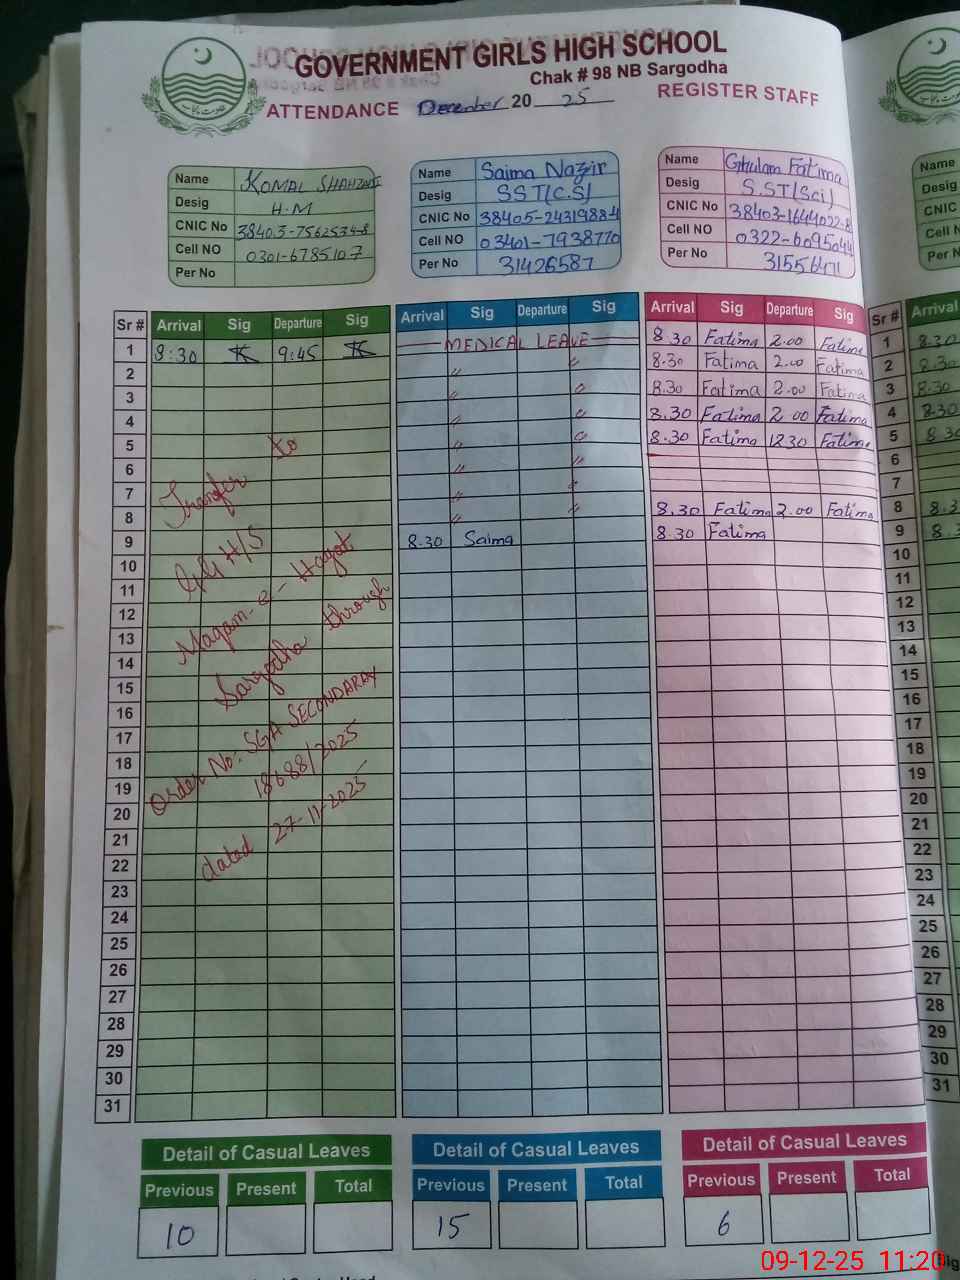 GOVERNMENT GIRLS HIGH SCHOOL
Chak # 98 NB Sargodha
ATTENDANCE December 20 25 REGISTER STAFF
Name KOMAL SHAHZADI
Desig H.M
CNIC No 38403-7562534-8
Cell NO 0301-6785107
Per No
Name Saima Nazir
Desig SST(C.S)
CNIC No 38405-2431988-4
Cell NO 03401-7938770
Per No 31426587
Name Ghulam Fatima
Desig S.ST(Sci)
CNIC No 38403-1644022-8
Cell NO 0322-6095044
Per No 31556471
Name
Desig
CNIC
Cell N
Per N
Sr # Arrival Sig Departure Sig Arrival Sig Departure Sig Arrival Sig Departure Sig Sr # Arrival
1 8:30 9:45 MEDICAL LEAVE 8.30 Fatima 2.00 Fatima 1 8.30
2 " " 8.30 Fatima 2.00 Fatima 2 8.30
3 " " 8.30 Fatima 2.00 Fatima 3 8.30
4 " " 8.30 Fatima 2.00 Fatima 4 8.30
5 " " 8.30 Fatima 12.30 Fatima 5 8.30
6 " " 6
7 " " 7
8 " " 8.30 Fatima 2.00 Fatima 8 8.3
9 8.30 Saima 8.30 Fatima 9 8.3
10 10
11 11
12 12
13 13
14 14
15 15
16 16
17 17
18 18
19 19
20 20
21 21
22 22
23 23
24 24
25 25
26 26
27 27
28 28
29 29
30 30
31 31
Transfer to
GG H/S
Maqam-e-Hayat
Sargodha through
Order No: SGA SECONDARAY
18688/2025
dated 27-11-2025
Detail of Casual Leaves Detail of Casual Leaves Detail of Casual Leaves
Previous Present Total Previous Present Total Previous Present Total
10 15 6
09-12-25 11:20